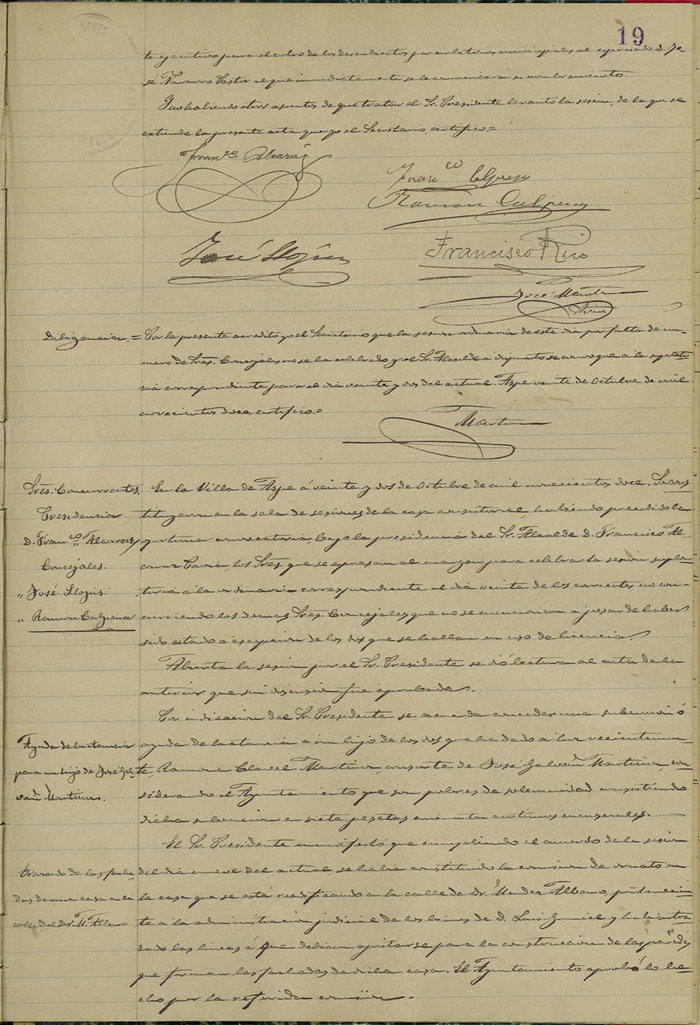 19
te ejecutivo para el cobro de los descubiertos por arbitrios municipales al expresado D. Jo-
sé Navarro Pastor el que inmediatamente se le comunicará su nombramiento.
No habiendo otros asuntos de que tratar el Sr. Presidente levantó la sesion, de la que se
extiende la presente acta que yo el Secretario, certifico=
Franco Alcaraz
Franco
Ramon Calpena
José Llopis
Francisco Rico
José Martinez
Diligencia = Por la presente acredito yo el Secretario que la sesion ordinaria de este dia por falta de nu-
mero de Sres. Concejales no se ha celebrado y el Sr. Alcalde a dispuesto se convoque a la supleto-
ria correspondiente para el dia veinte y dos del actual. Aspe veinte de Octubre de mil
novecientos doce, certifico=
Martinez
Sres. Concurrentes
Presidencia
D. Franco Alcaraz
Concejales
" José Llopis
" Ramon Calpena
En la Villa de Aspe á veinte y dos de Octubre de mil novecientos doce. Se cons
tituyeron en la sala de sesiones de la casa consistorial, habiendo precedido la
oportuna convocatoria, bajo la presidencia del Sr. Alcalde D. Francisco Al-
caraz los Sres. que se expresan al margen para celebrar la sesion suple-
toria a la ordinaria correspondiente al dia veinte de los corrientes, no con-
curriendo los demas Sres. Concejales que no se mencionan a pesar de haber
sido citados a excepcion de los dos que se hallan en uso de licencia.
Abierta la sesion por el Sr. Presidente se dió lectura al acta de la
anterior que sin discusion fue aprobada.
Ayuda de lactancia
para un hijo de José Gal-
vañ Martinez.
Por indicacion del Sr. Presidente se acuerda conceder una subvencion ó
ayuda de lactancia a un hijo de los dos que ha dado a luz recientemen-
te, Ramona Clavel Martinez, consorte de José Galvañ Martinez, con-
siderando el Ayuntamiento que son pobres de solemnidad consistiendo
dicha subvencion en siete pesetas cincuenta centimos mensuales.
Trazado de las facha-
das de una casa en la
calle del Dr. M. Albaro
El Sr. Presidente manifestó que cumpliendo el acuerdo de la sesion
del dia nueve del actual se habia constituido la comision de ornato en
la casa que se está reedificando en la calle de Dr. Mendez Albaro, pertenecien-
te a la administracion judicial de los bienes de D. Luis y habia tra-
zado las lineas a que debian ajustarse para la construccion de las paredes
que forman las fachadas de dicha casa. El Ayuntamiento aprobó lo he-
cho por la referida comision.